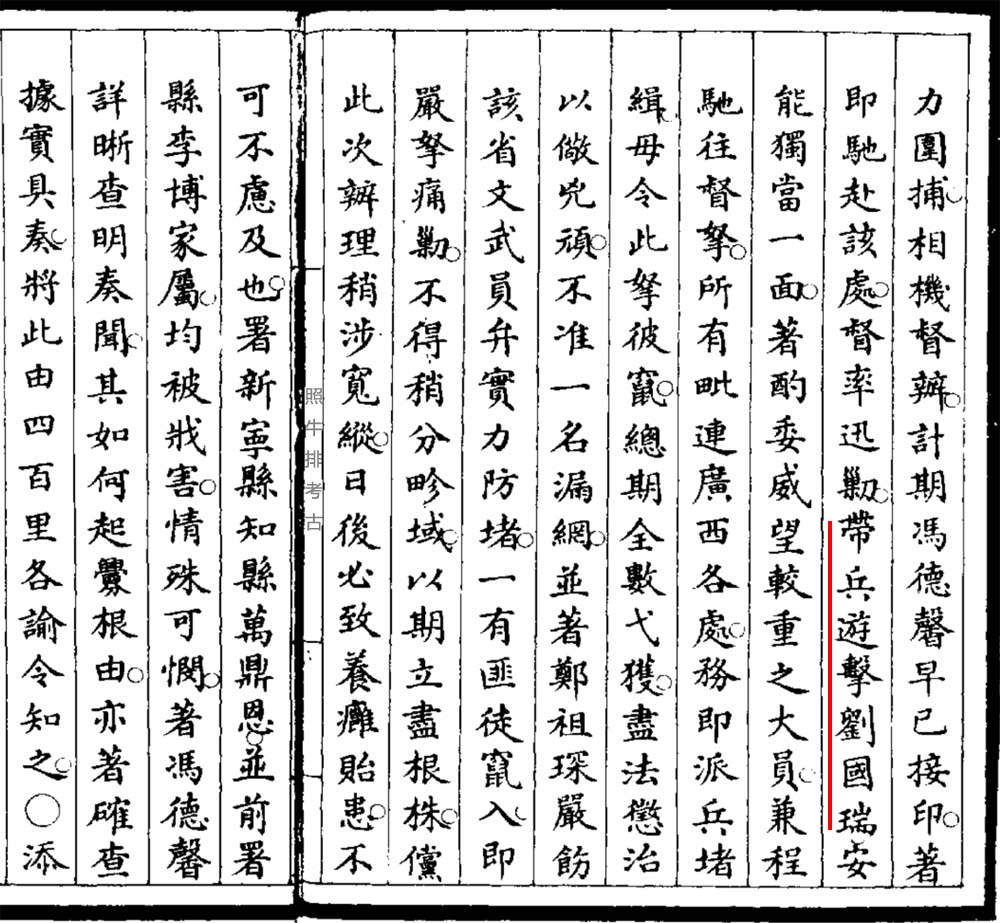 力圍捕相機督辦計期馮德馨早已接印著
即馳赴該處督率迅勦帶兵遊擊劉國瑞安
能獨當一面著酌委威望較重之大員兼程
馳往督拏所有毗連廣西各處務即派兵堵
緝毋令此拏彼竄總期全數弋獲盡法懲治
以儆兇頑不准一名漏網並著鄭祖琛嚴飭
該省文武員弁實力防堵一有匪徒竄入即
嚴拏痛勦不得稍分畛域以期立盡根株儻
此次辦理稍涉寬縱日後必致養癰貽患不
可不慮及也署新寧縣知縣萬鼎恩並前署
縣李博家屬均被戕害情殊可憫著馮德馨
詳晰查明奏聞其如何起釁根由亦著確查
據實具奏將此由四百里各諭令知之○添
照牛排考古